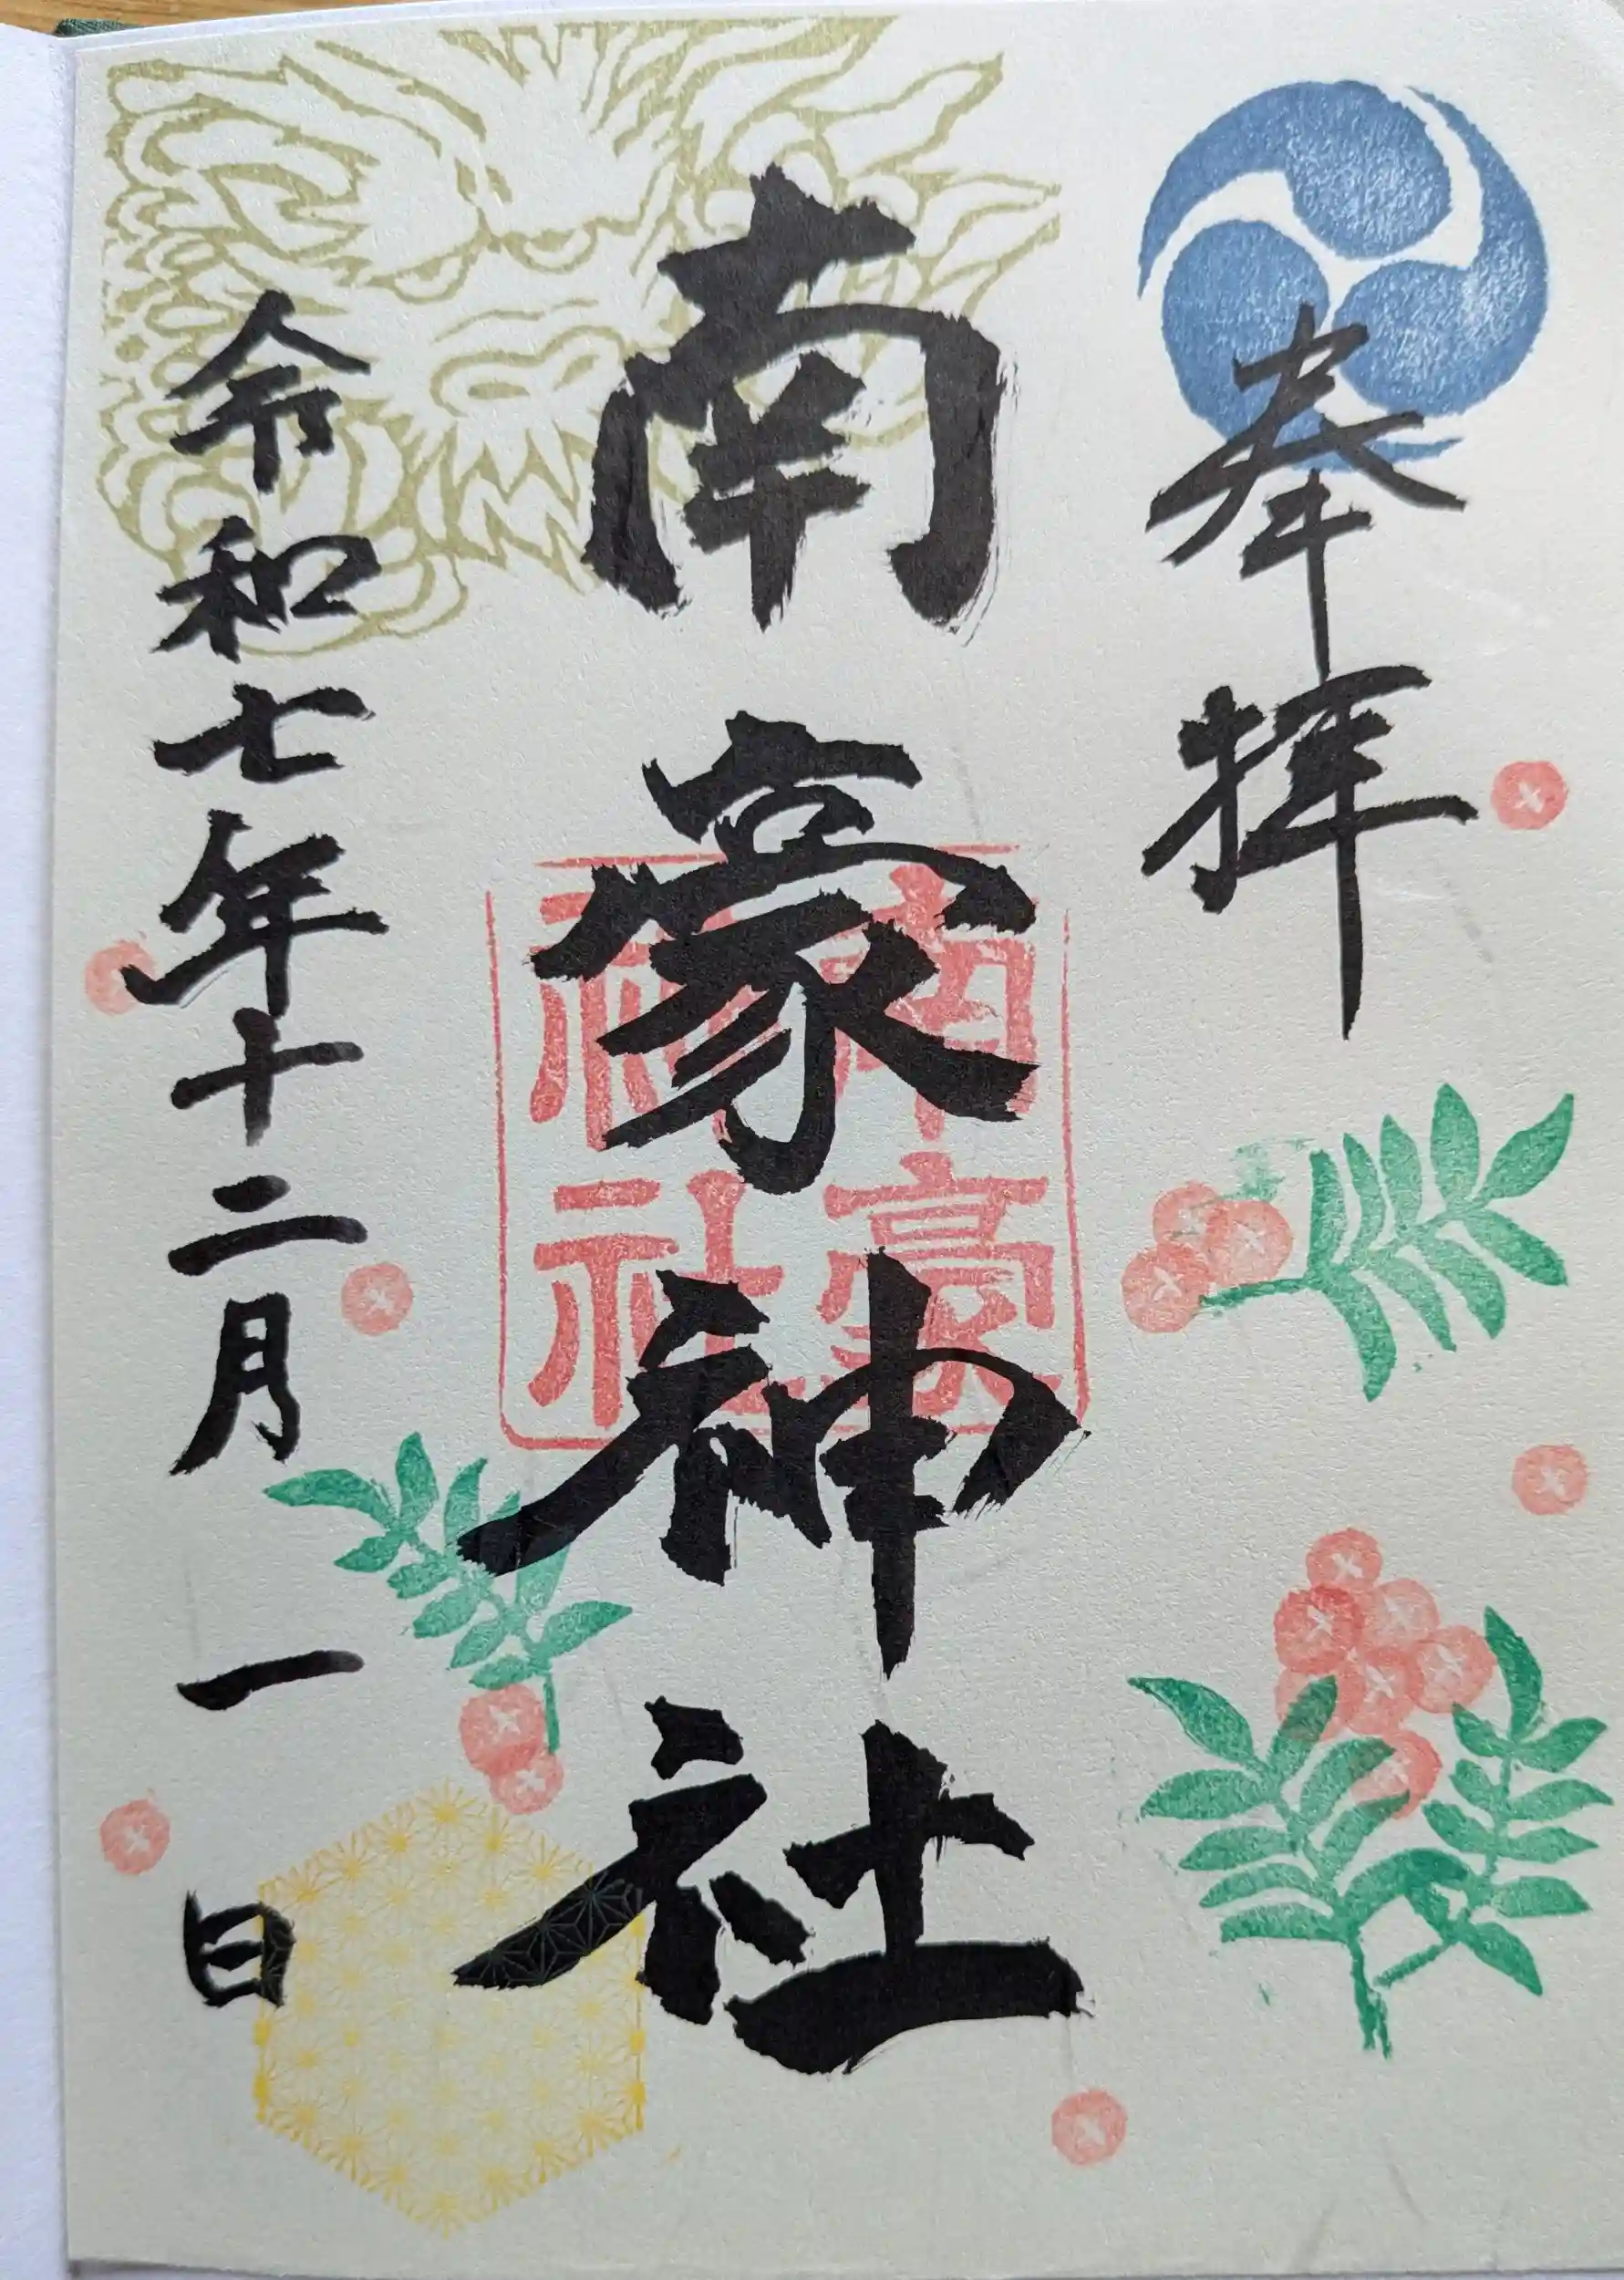 奉拝
南豪神社
南豪
神社
令和七年十二月一日